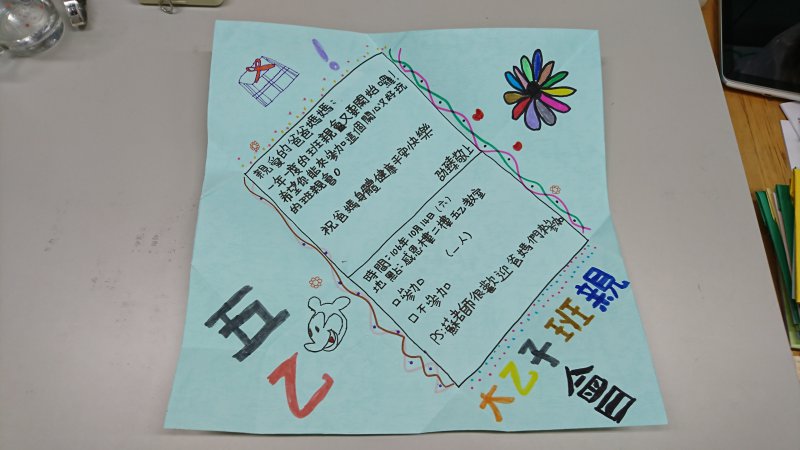 親愛的爸爸媽媽：
一年一度的班親會又要開始囉！
希望你能來參加這個開心又好玩
的班親會。
祝爸媽身體健康平安快樂
敬上
時間：106年10月14日(六)
地點：感恩樓二樓五乙教室
口參加 (一人)
口不參加
PS蘇老師很歡迎爸媽們來參加
五
乙
大乙子班親
會